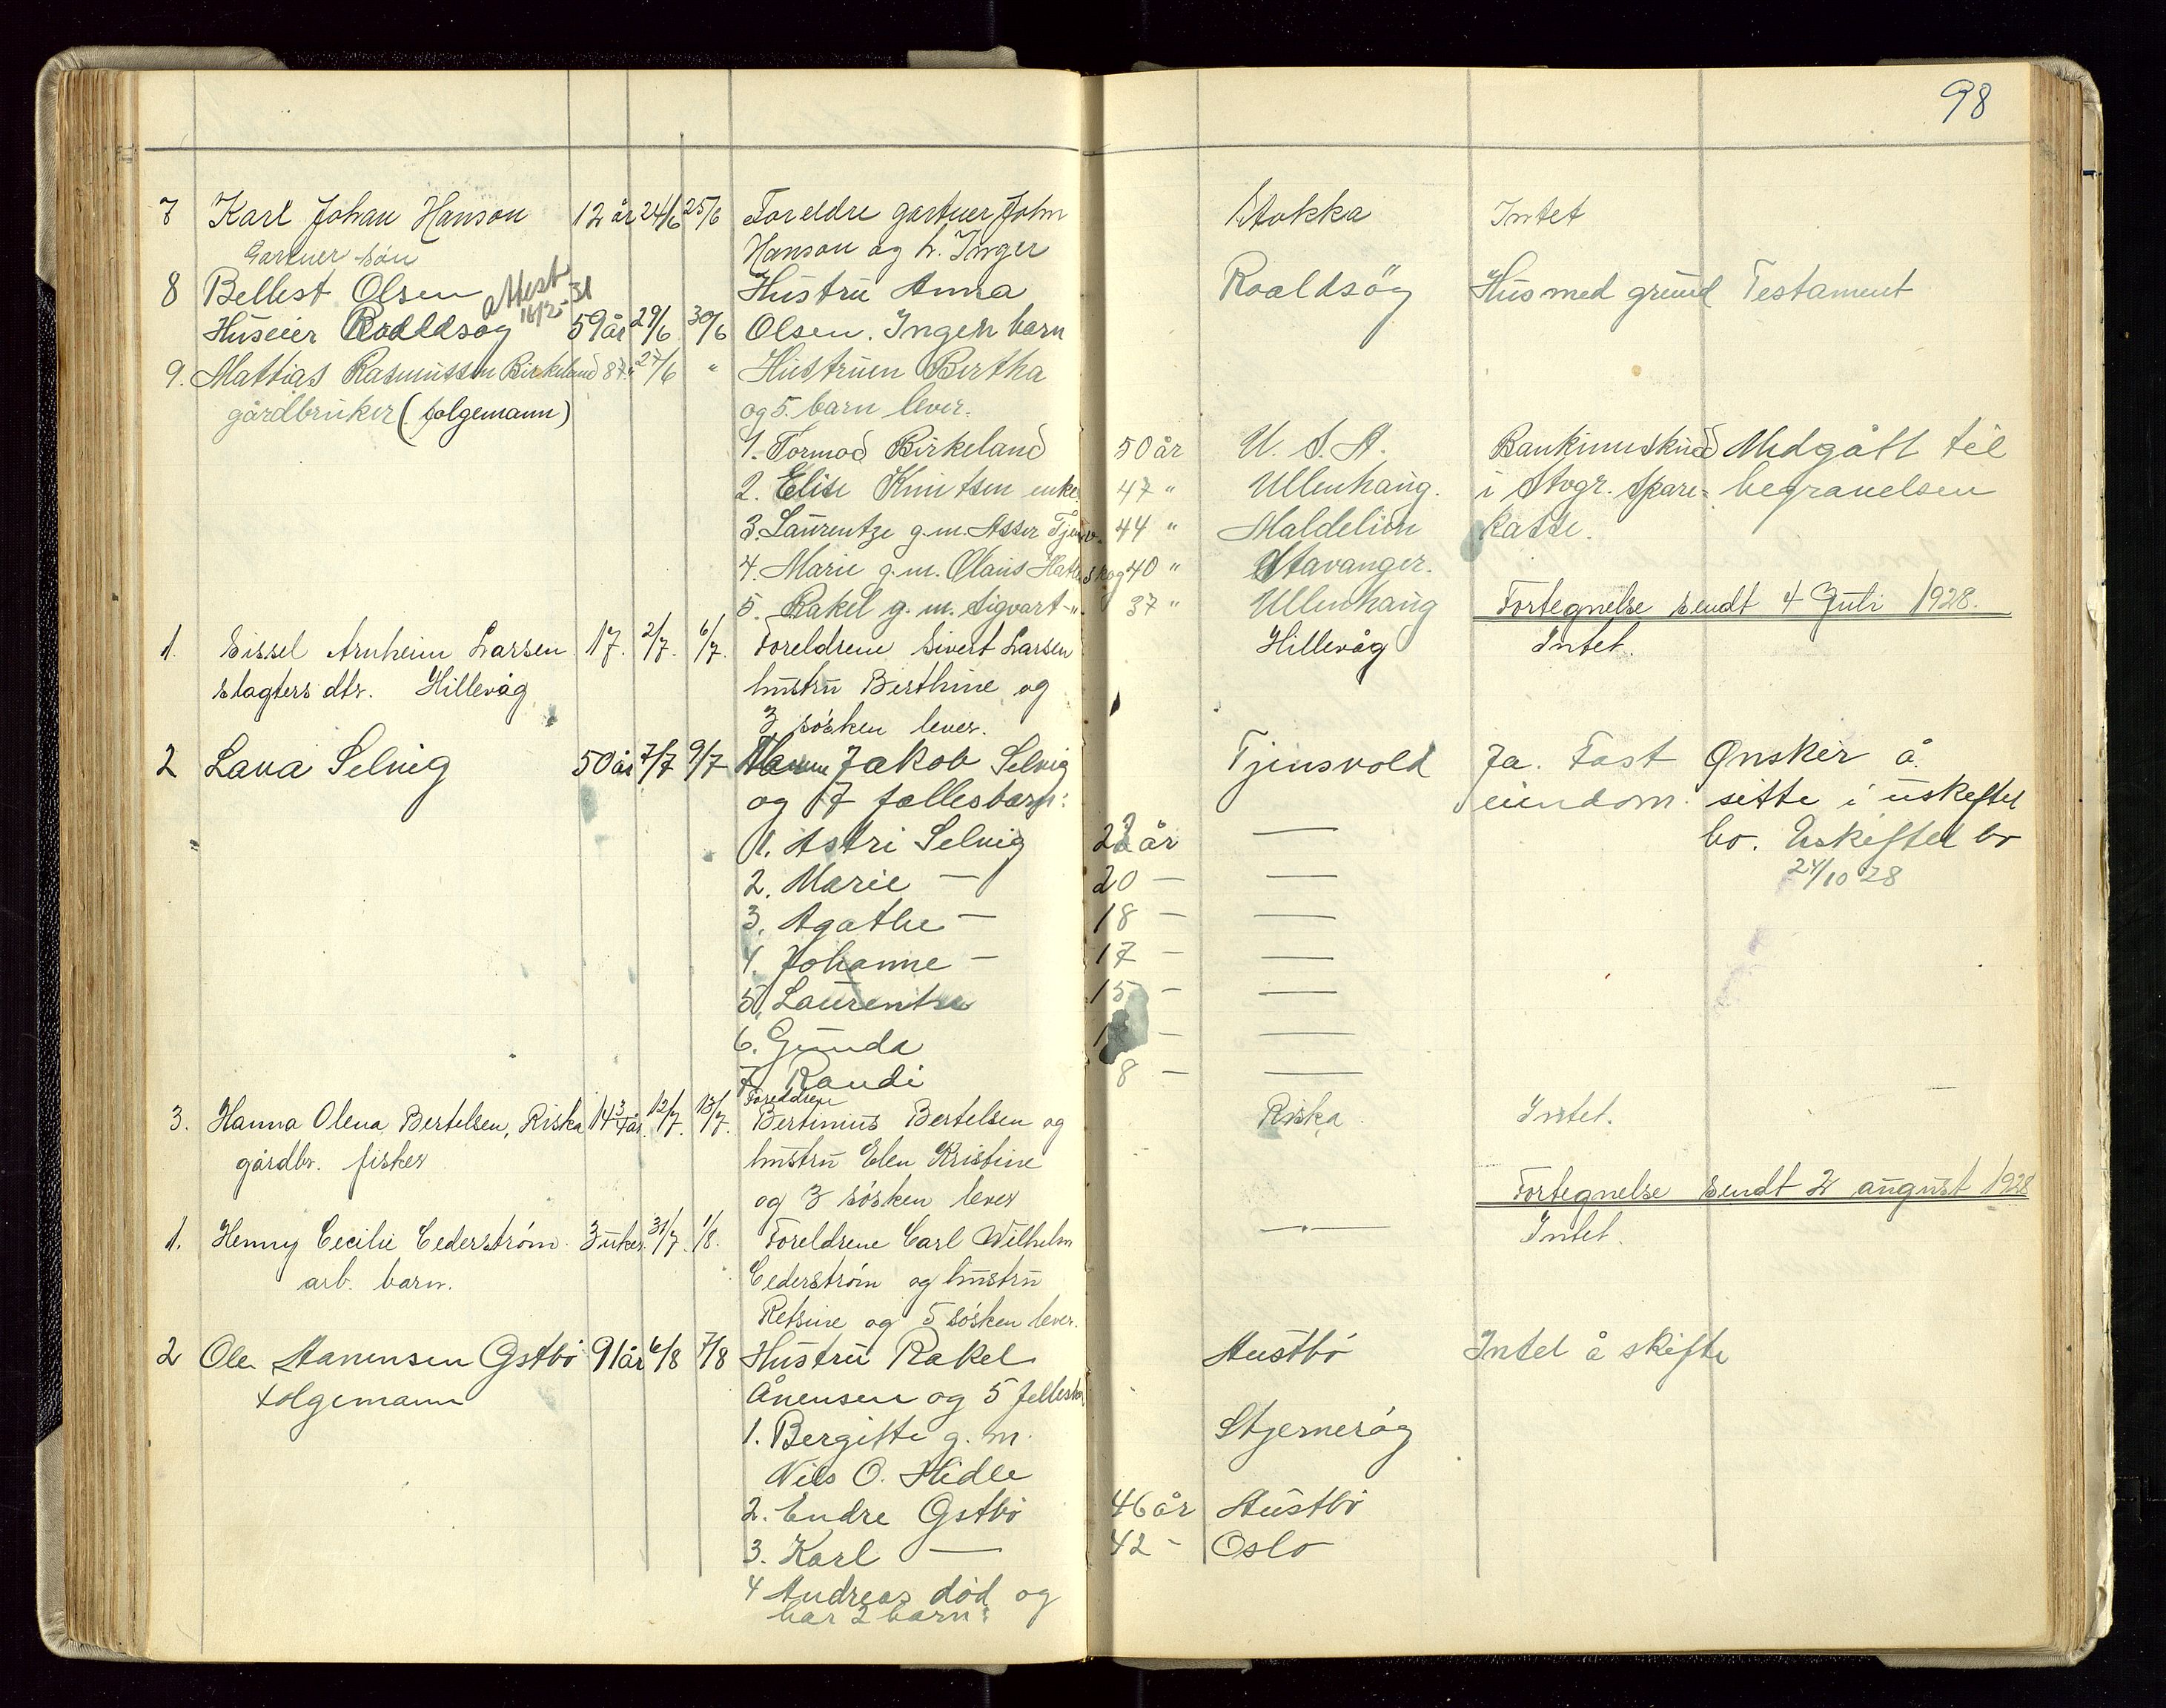 98
7 Karl Johan Hanson 12 år 24/6 25/6 Foreldre gartner John Stokka Intet
Gartner søn Hanson og h. Inger
8 Bellest Olsen attest 16/2-31 Hustru Anna Roaldsöy Hus med grund Testament
Huseier Roaldsøy 59 år 29/6 30/6 Olsen. Ingen barn
9. Mattias Rasmussen Birkeland 87 " 27/6 " Hustruen Bertha
gårdbruker (folgemann) og 5. barn lever.
1. Tormod Birkeland 50 år U. S. A. Bankinnskudd Medgått til
2. Elise Knutsen enke 47 " Ullenhaug. i Stvgr. Spare= begravelsen
3. Laurentze g.m. Asser Tjensv. 44 " Maldelien kasse.
4. Marie g.m. Olaus Hatleskog 40 " Stavanger.
5. Rakel g. m. Sigvart -"- 37 " Ullenhaug Fortegnelse sendt 4 Juli 1928.
1. Sissel Arnheim Larsen 17. 2/7. 6/7. Foreldrene Sivert Larsen Hillevåg Intet.
slagters dtr. Hillevåg hustru Berthine og
3 søsken lever.
2 Lava Selvig 50 år 7/7 9/7 Mann Jakob Selvig Tjensvold Ja. Fast Ønsker å
og 7 fællesbarn: eiendom. sitte i uskiftet
1. Astri Selvig 22 år — bo. Uskiftet bo
2. Marie — 20 — — 24/10 28
3. Agathe — 18 — —
4. Johanne — 17 — —
5. Laurentse 15 — —
6. Gunda — —
7. Randi 8 — —
3. Hanna Olena Bertelsen, Riska 14 3/4 år. 12/7. 13/7. Foreldrene Bertinius Bertelsen og Riska. Intet.
gårdbr. fisker hustru Elen Kristine
og 3 søsken lever Fortegnelse sendt 2 august 1928
1. Henny Cecilie Cederstrøm 3 uker. 31/7. 1/8. Foreldrene Carl Wilhelm — Intet.
arb. barn. Cederstrøm og hustru
Retsine og 5 søsken lever.
2 Ole Aanensen Østbø 91 år 6/8 7/8 Hustru Rakel Austbø Intet å skifte
folgemann Ånensen og 5 fellesbar
1. Bergitte g. m. Stjernerøy
Nils O. Hidle
2. Endre Østbø 46 år Austbø
3. Karl — 42 - Oslo
4 Andreas død og
har 2 barn: